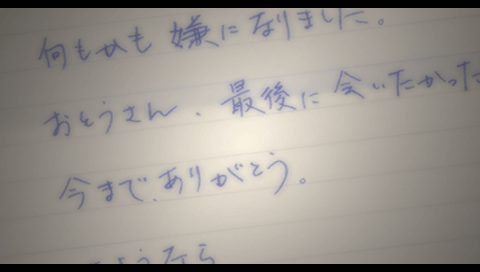 何もかも嫌になりました。
おとうさん、最後に会いたかった
今まで、ありがとう。
さようなら